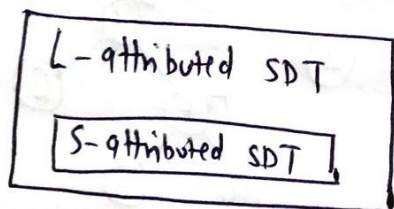 L-attributed SDT
S-attributed SDT